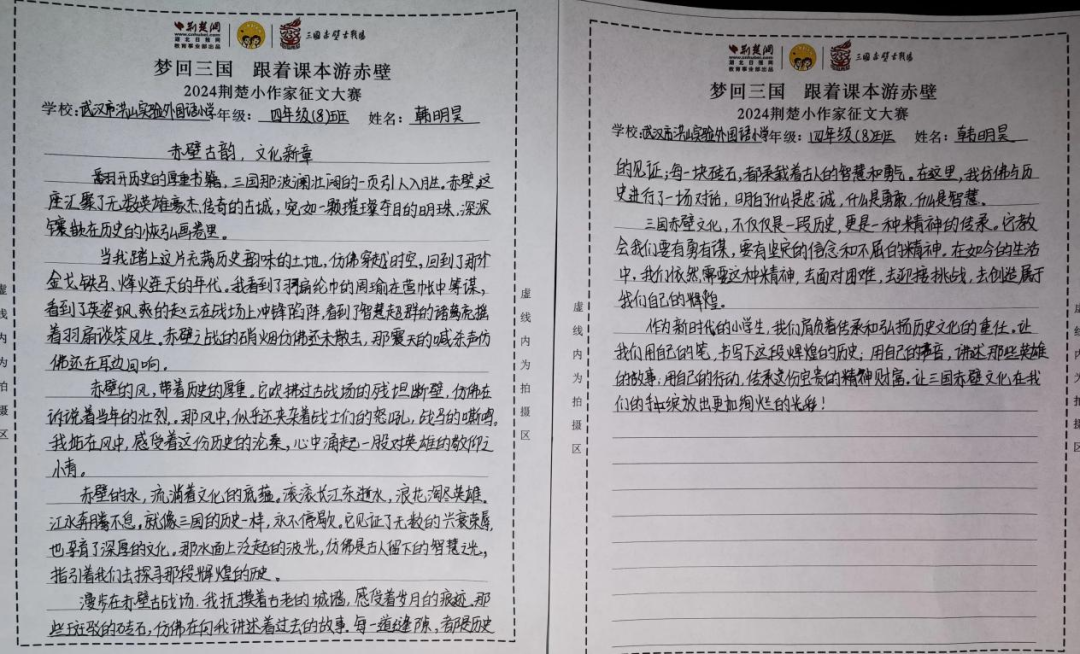 荆楚网
湖北日报网
教育事业部出品
三国赤壁古战场
梦回三国 跟着课本游赤壁
2024荆楚小作家征文大赛
学校:武汉市洪山实验外国语小学年级:四年级(8)班 姓名:韩明昊
赤壁古韵,文化新章
翻开历史的厚重书籍,三国那波澜壮阔的一页引人入胜。赤壁,这
座汇聚了无数英雄豪杰传奇的古城,宛如一颗璀璨夺目的明珠,深深
镶嵌在历史的恢弘画卷里。
当我踏上这片充满历史韵味的土地,仿佛穿越时空,回到了那个
金戈铁马、烽火连天的年代。我看到了羽扇纶巾的周瑜在营帐中筹谋,
看到了英姿飒爽的赵云在战场上冲锋陷阵,看到了智慧超群的诸葛亮摇
着羽扇谈笑风生。赤壁之战的硝烟仿佛还未散去,那震天的喊杀声仿
佛还在耳边回响。
赤壁的风,带着历史的厚重。它吹拂过古战场的残垣断壁,仿佛在
诉说着当年的壮烈。那风中,似乎还夹杂着战士们的怒吼,战马的嘶鸣。
我站在风中,感受着这份历史的沧桑,心中涌起一股对英雄的敬仰之
情。
赤壁的水,流淌着文化的底蕴。滚滚长江东逝水,浪花淘尽英雄。
江水奔腾不息,就像三国的历史一样,永不停歇。它见证了无数的兴衰荣辱,
也孕育了深厚的文化。那水面上泛起的波光,仿佛是古人留下的智慧之光,
指引着我们去探寻那段辉煌的历史。
漫步在赤壁古战场,我抚摸着古老的城墙,感受着岁月的痕迹。那
些斑驳的砖石,仿佛在向我讲述着过去的故事。每一道缝隙,都是历史
虚线内为拍摄区
虚线内为拍摄区
荆楚网
湖北日报网
教育事业部出品
三国赤壁古战场
梦回三国 跟着课本游赤壁
2024荆楚小作家征文大赛
学校:武汉市洪山实验外国语小学年级:四年级(8)班 姓名:韩明昊
的见证;每一块砖石,都承载着古人的智慧和勇气。在这里,我仿佛与历
史进行了一场对话,明白了什么是忠诚,什么是勇敢,什么是智慧。
三国赤壁文化,不仅仅是一段历史,更是一种精神的传承。它教
会我们要有勇有谋,要有坚定的信念和不屈的精神。在如今的生活
中,我们依然需要这种精神,去面对困难,去迎接挑战,去创造属于
我们自己的辉煌。
作为新时代的小学生,我们肩负着传承和弘扬历史文化的重任。让
我们用自己的笔,书写下这段辉煌的历史;用自己的声音,讲述那些英雄
的故事;用自己的行动,传承这份宝贵的精神财富。让三国赤壁文化在我
们的手中绽放出更加绚烂的光彩!
虚线内为拍摄区
虚线内为拍摄区